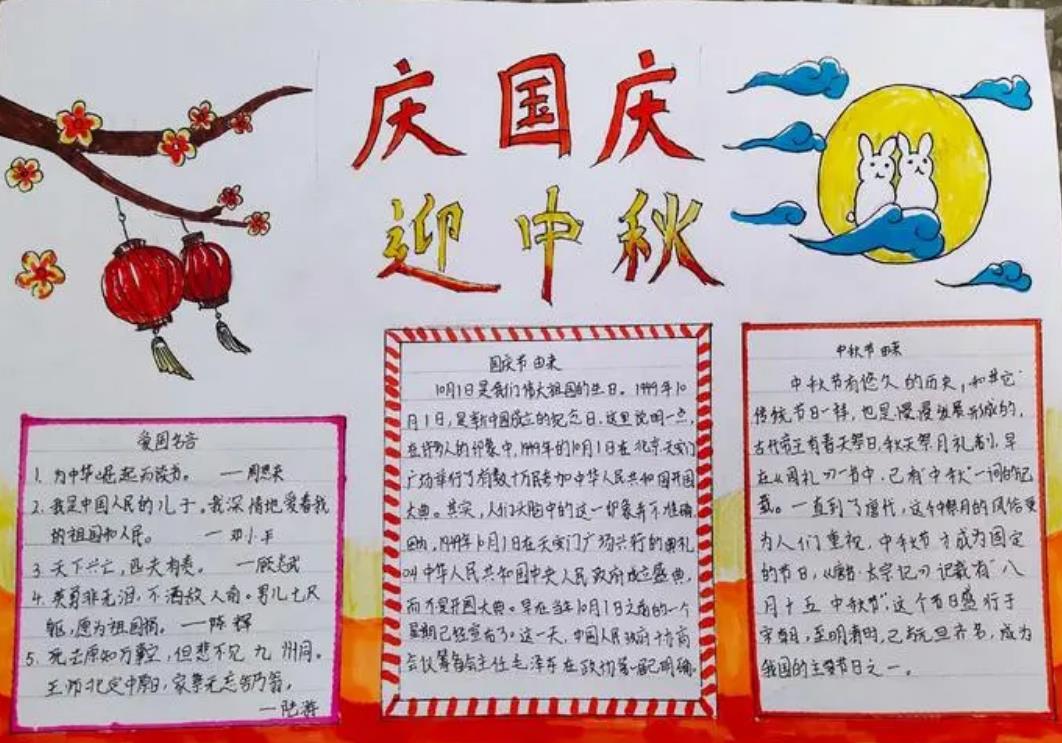 庆国庆
迎中秋
爱国名言
1. 为中华崛起而读书。 —周恩来
2. 我是中国人民的儿子。我深情地爱着我
的祖国和人民。 —邓小平
3. 天下兴亡，匹夫有责。 —顾炎武
4. 英勇非无泪，不洒敌人前。男儿七尺
躯，愿为祖国捐。 —陈辉
5. 死去原知万事空，但悲不见九州同。
王师北定中原日，家祭无忘告乃翁。
—陆游
国庆节由来
10月1日是我们伟大祖国的生日。1949年10
月1日，是新中国成立的纪念日。这里说明一点，
在许多人的印象中，1949年的10月1日在北京天安门
广场举行了有数十万民参加中华人民共和国开国
大典。其实，人们头脑中的这一印象并不准确
因为，1949年10月1日在天安门广场举行的典礼
叫中华人民共和国中央人民政府成立盛典，
而不是开国大典。早在当年10月1日之前的一个
星期已经宣布了。这一天，中国人民政府
会议筹备会主任毛泽东在政协第一届已明确。
中秋节由来
中秋节有悠久的历史，和其它
传统节日一样，也是慢慢发展形成的，
古代帝王有春天祭日，秋天祭月礼制，早
在《周礼》一书中，已有"中秋"一词的记
载。一直到了唐代，这种祭月的风俗更
为人们重视，中秋节才成为固定
的节日，《唐书·太宗记》记载有"八
月十五中秋节"，这个节日盛行于
宋朝，至明清时，已与元旦齐名，成为
我国的主要节日之一。